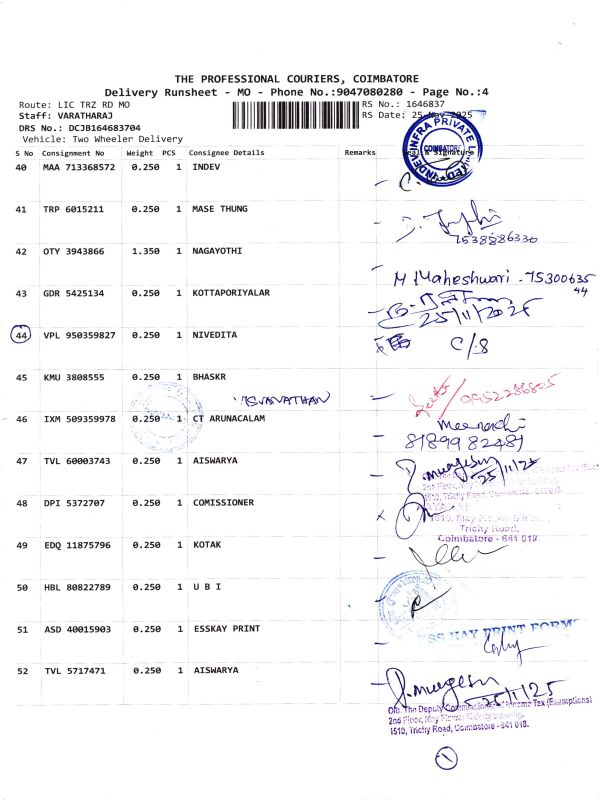 THE PROFESSIONAL COURIERS, COIMBATORE
Delivery Runsheet - MO - Phone No.:9047080280 - Page No.:4
Route: LIC TRZ RD MO RS No.: 1646837
Staff: VARATHARAJ RS Date: 25-Nov-2025
DRS No.: DCJB164683704
Vehicle: Two Wheeler Delivery
INDEV INFRA PRIVATE LIMITED COIMBATORE
S No Consignment No Weight PCS Consignee Details Remarks Seal & Signature
40 MAA 713368572 0.250 1 INDEV
41 TRP 6015211 0.250 1 MASE THUNG
7538886330
42 OTY 3943866 1.350 1 NAGAYOTHI
M. Maheshwari - 75300635
44
43 GDR 5425134 0.250 1 KOTTAPORIYALAR
25/11/2025
44 VPL 950359827 0.250 1 NIVEDITA
C/8
45 KMU 3808555 0.250 1 BHASKR
9952286805
46 IXM 509359978 0.250 1 CT ARUNACALAM
Meenachi
8189982481
47 TVL 60003743 0.250 1 AISWARYA
25/11/25
1510, Trichy Road, Coimbatore
48 DPI 5372707 0.250 1 COMISSIONER
Trichy Road,
Coimbatore - 641 018.
49 EDQ 11875796 0.250 1 KOTAK
50 HBL 80822789 0.250 1 U B I
51 ASD 40015903 0.250 1 ESSKAY PRINT
KAY PRINT FORMS
52 TVL 5717471 0.250 1 AISWARYA
25/11/25
O/o. The Deputy Commissioner of Income Tax (Exemptions)
2nd Floor, May Flower
1510, Trichy Road, Coimbatore - 641 018.
1